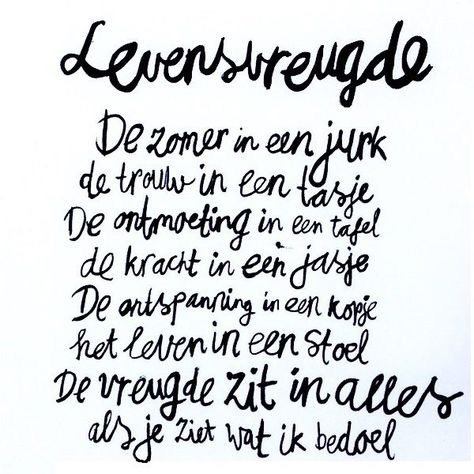 Levensvreugde
De zomer in een jurk
de trouw in een tasje
De ontmoeting in een tafel
de kracht in een jasje
De ontspanning in een kopje
het leven in een stoel
De vreugde zit in alles
als je ziet wat ik bedoel